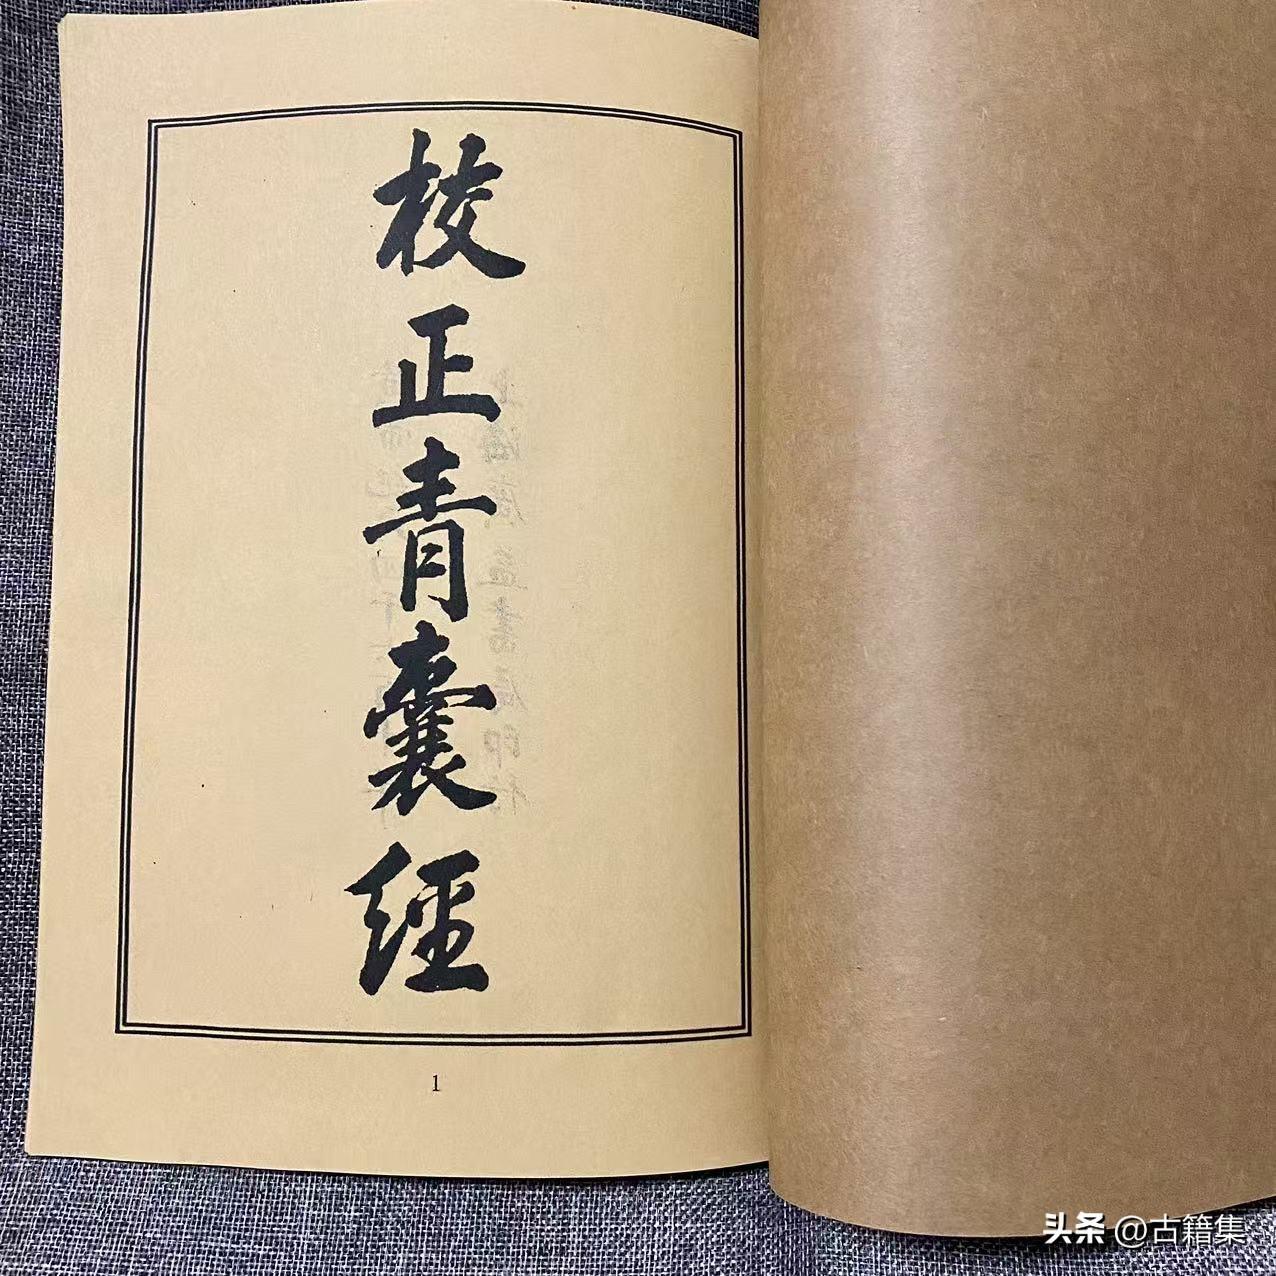 校正青囊經
1
头条 @古籍集